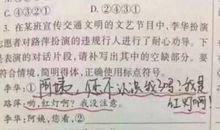 C. ②④③① D. ④②③①
3. 在某班宣传交通文明的文艺节目中,李华扮演
志愿者对路萍扮演的违规行人进行了耐心劝导。下
表演的对话片段,请补写出其中的空缺部分。要
符合情境,简明得体,正确使用标点符号。
李华:① 阿姨,您不认识我了吗?我是
红灯啊
路萍:哟,红灯啊?我没注意。
李华:阿姨,您看,②